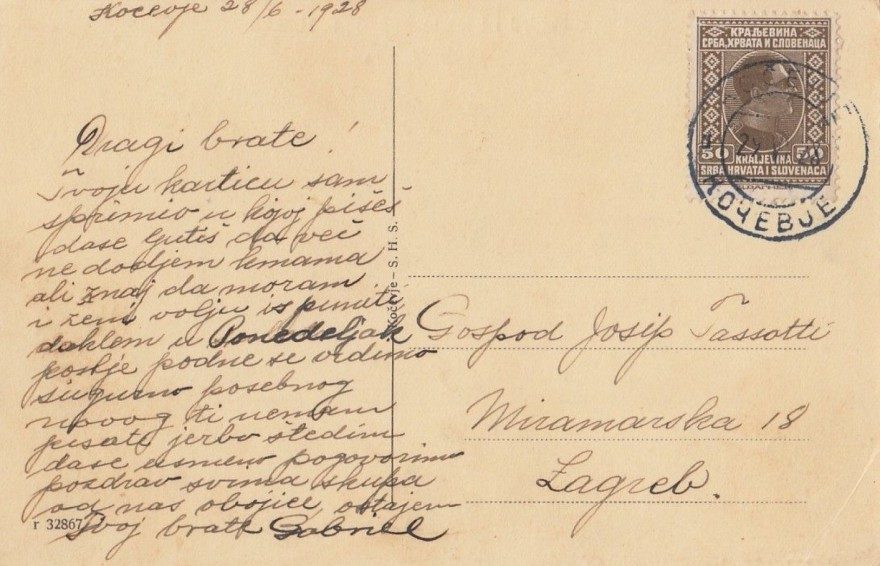 Kočevje 28/6 - 1928
Dragi brate!
Tvoju karticu sam
sprimio u kojoj pišeš
dase ljutiš da već
ne dodjem kmama
ali znaj da moram
i ženi volju ispuniti
daklem u Ponedeljak
poslje podne se vidimo
sigurno posebnog
novog ti nemam
pisati jerbo štedim
dase usmeno pogovorimo
pozdrav svima skupa
od nas obojice, ostajem
Tvoj brat Gabriel
r 32867
Kočevje - S. H. S.
КРАЉЕВИНА
СРБА, ХРВАТА И СЛОВЕНАЦА
50 50
KRALJEVINA
SRBA, HRVATA I SLOVENACA
КОЧЕВЈЕ
Gospod Josip Tassotti
Miramarska 18
Zagreb.